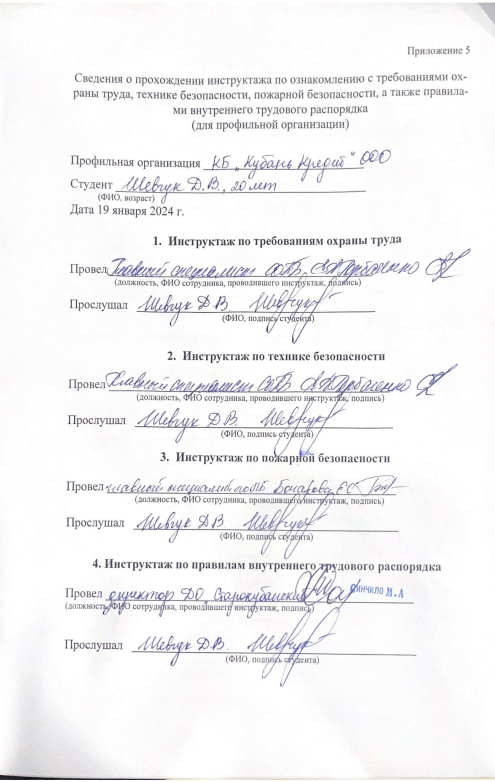 Приложение 5
Сведения о прохождении инструктажа по ознакомлению с требованиями ох-
раны труда, технике безопасности, пожарной безопасности, а также правила-
ми внутреннего трудового распорядка
(для профильной организации)
Профильная организация КБ „Кубань Кредит" ООО
Студент Шевчук Д.В., 20 лет
(ФИО, возраст)
Дата 19 января 2024 г.
1. Инструктаж по требованиям охраны труда
Провел Главный специалист
(должность, ФИО сотрудника, проводившего инструктаж, подпись)
Прослушал Шевчук Д.В. Шевчук
(ФИО, подпись студента)
2. Инструктаж по технике безопасности
Провел Главный специалист
(должность, ФИО сотрудника, проводившего инструктаж, подпись)
Прослушал Шевчук Д.В. Шевчук
(ФИО, подпись студента)
3. Инструктаж по пожарной безопасности
Провел главный специалист по ПБ
(должность, ФИО сотрудника, проводившего инструктаж, подпись)
Прослушал Шевчук Д.В. Шевчук
(ФИО, подпись студента)
4. Инструктаж по правилам внутреннего трудового распорядка
Провел директор ДО Старокубанский ФИНЧИЛО М.А
(должность, ФИО сотрудника, проводившего инструктаж, подпись)
Прослушал Шевчук Д.В. Шевчук
(ФИО, подпись студента)